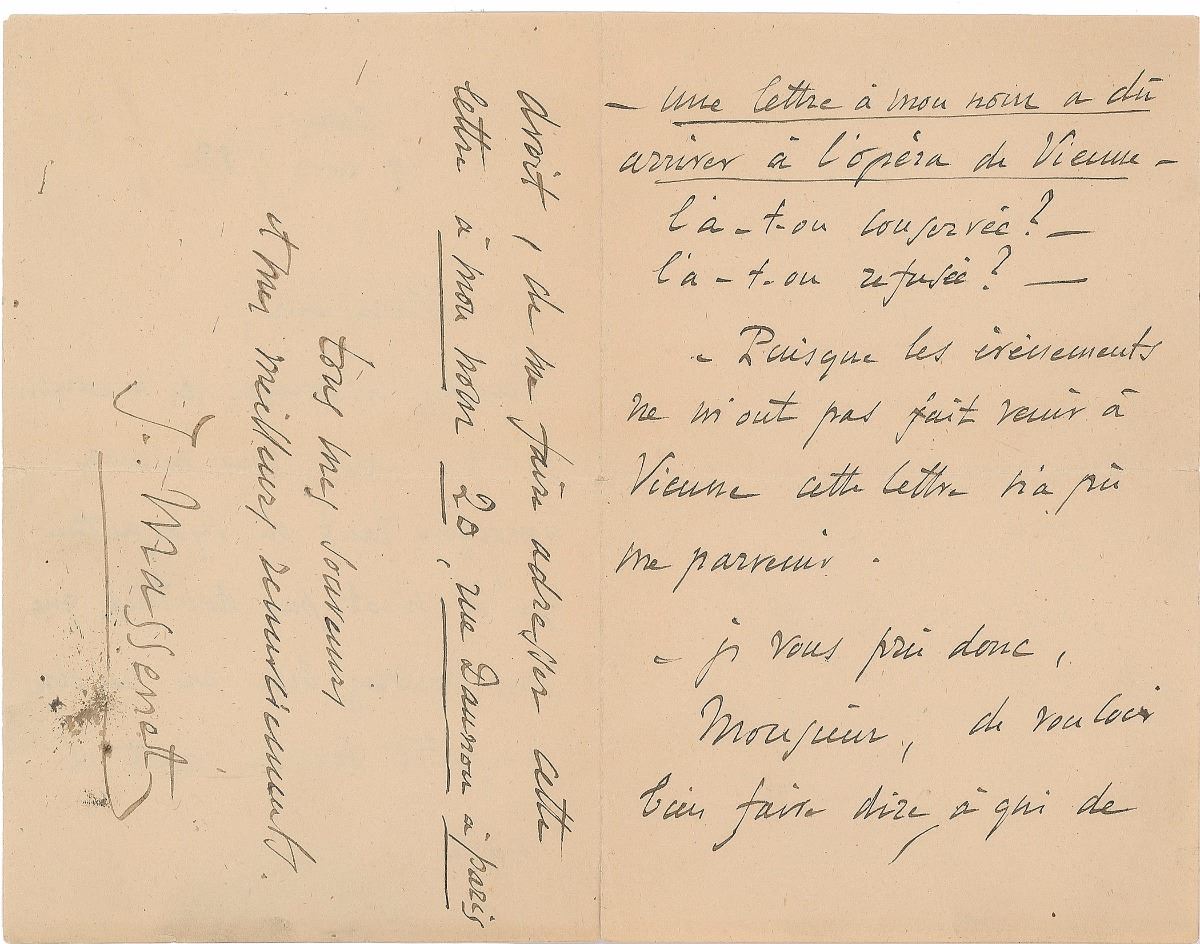 - une lettre à mon nom a dû
arriver à l'opéra de Vienne -
l'a-t-on conservée? -
l'a-t-on refusée? -
- Puisque les événements
ne m'ont pas fait venir à
Vienne cette lettre n'a pu
me parvenir.
- je vous prie donc,
Monsieur, de vouloir
bien faire dire, à qui de
droit, de me faire adresser cette
lettre à mon nom 20, rue Daunou à paris
tous mes
et mes meilleurs remerciements.
J. Massenet